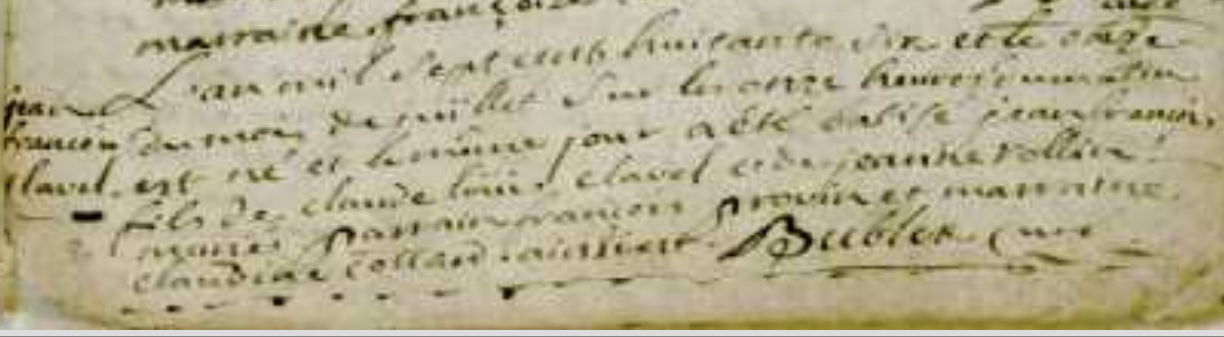 marraine françoise
L'an mil sept cens huitante dix et le onze
jean du mois de juillet sur les onze heures du matin
françois est né et le même jour a été batisé jean françois
clavel fils de claude louis clavel et de jeanne rollier
mariés parrain françois provin et marraine
claudine colland Bublex curé